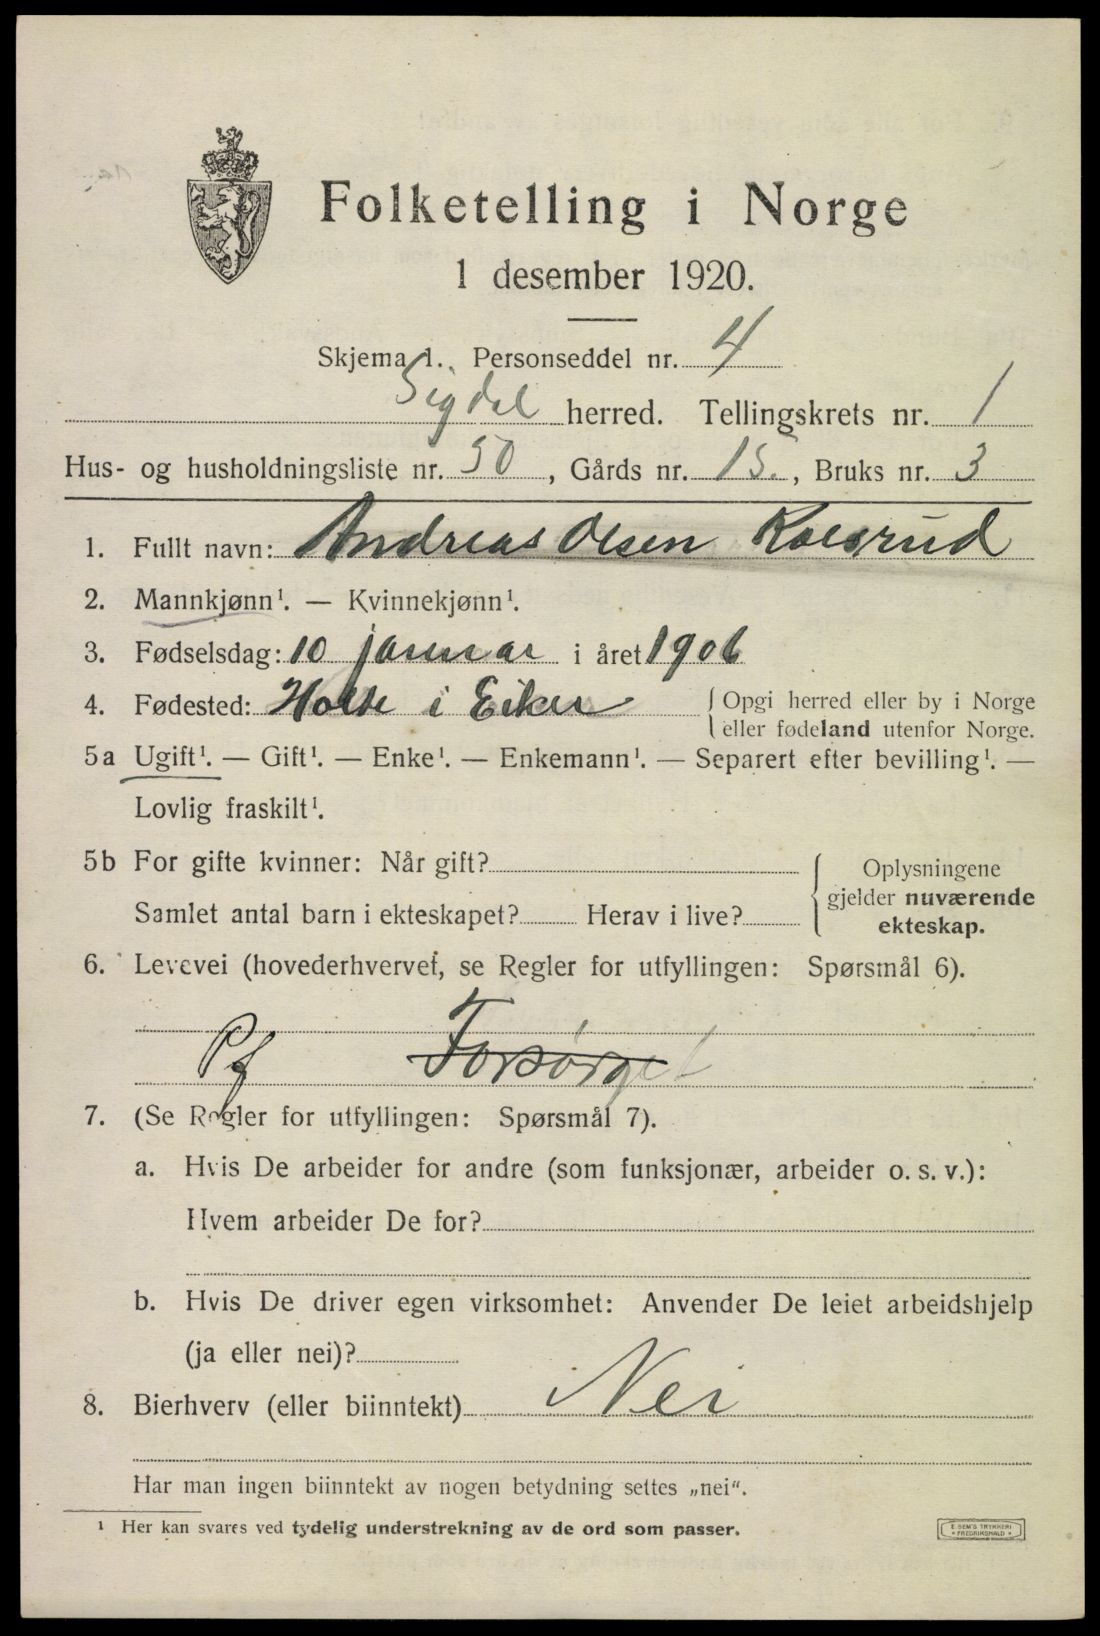 Folketelling i Norge
1 desember 1920.
Skjema 1. Personseddel nr. 4
Sigdal herred. Tellingskrets nr. 1
Hus- og husholdningsliste nr. 50, Gårds nr. 15., Bruks nr. 3
1. Fullt navn: Andreas Olsen
2. Mannkjønn¹. — Kvinnekjønn¹.
3. Fødselsdag: 10 januar i året 1906
4. Fødested: Holte i Eiker
Opgi herred eller by i Norge
eller fødeland utenfor Norge.
5a Ugift¹. — Gift¹. — Enke¹. — Enkemann¹. — Separert efter bevilling¹. —
Lovlig fraskilt¹.
5b For gifte kvinner: Når gift?
Samlet antal barn i ekteskapet? Herav i live?
Oplysningene
gjelder nuværende
ekteskap.
6. Levevei (hovederhvervet, se Regler for utfyllingen: Spørsmål 6).
Pf Forsørget
7. (Se Regler for utfyllingen: Spørsmål 7).
a. Hvis De arbeider for andre (som funksjonær, arbeider o. s. v.):
Hvem arbeider De for?
b. Hvis De driver egen virksomhet: Anvender De leiet arbeidshjelp
(ja eller nei)?
8. Bierhverv (eller biinntekt) Nei
Har man ingen biinntekt av nogen betydning settes „nei".
¹ Her kan svares ved tydelig understrekning av de ord som passer.
E. SEM'S TRYKKERI
• FREDRIKSHALD •